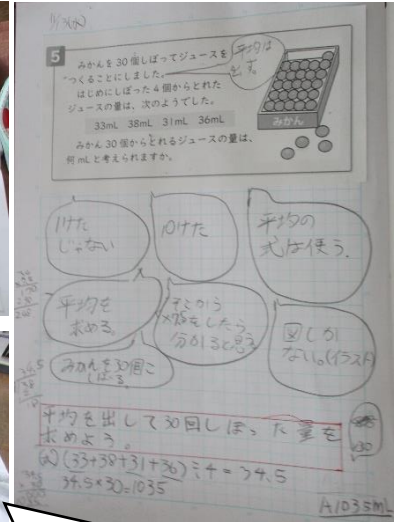 5
みかんを30個しぼってジュースを
つくることにしました。
はじめにしぼった4個からとれた
ジュースの量は、次のようでした。
33mL 38mL 31mL 36mL
みかん30個からとれるジュースの量は、
何mLと考えられますか。
みかん
平均は
出す。
1けた
じゃない
10けた
平均の
式は使う。
平均を
求める。
そこから
をしたら
分かると思う
図しか
ない。(イラスト)
みかんを30個
平均を出して30回しぼった量を
求めよう。
(33+38+31+36)÷4=34.5
34.5×30=1035
A.1035mL